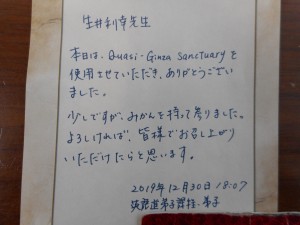 生井利幸先生
本日は、Quasi-Ginza Sanctuaryを
使用させていただき、ありがとうござい
ました。
少しですが、みかんを持って参りました。
よろしければ、皆様でお召し上がり
いただけたらと思います。
2019年12月30日 18:07